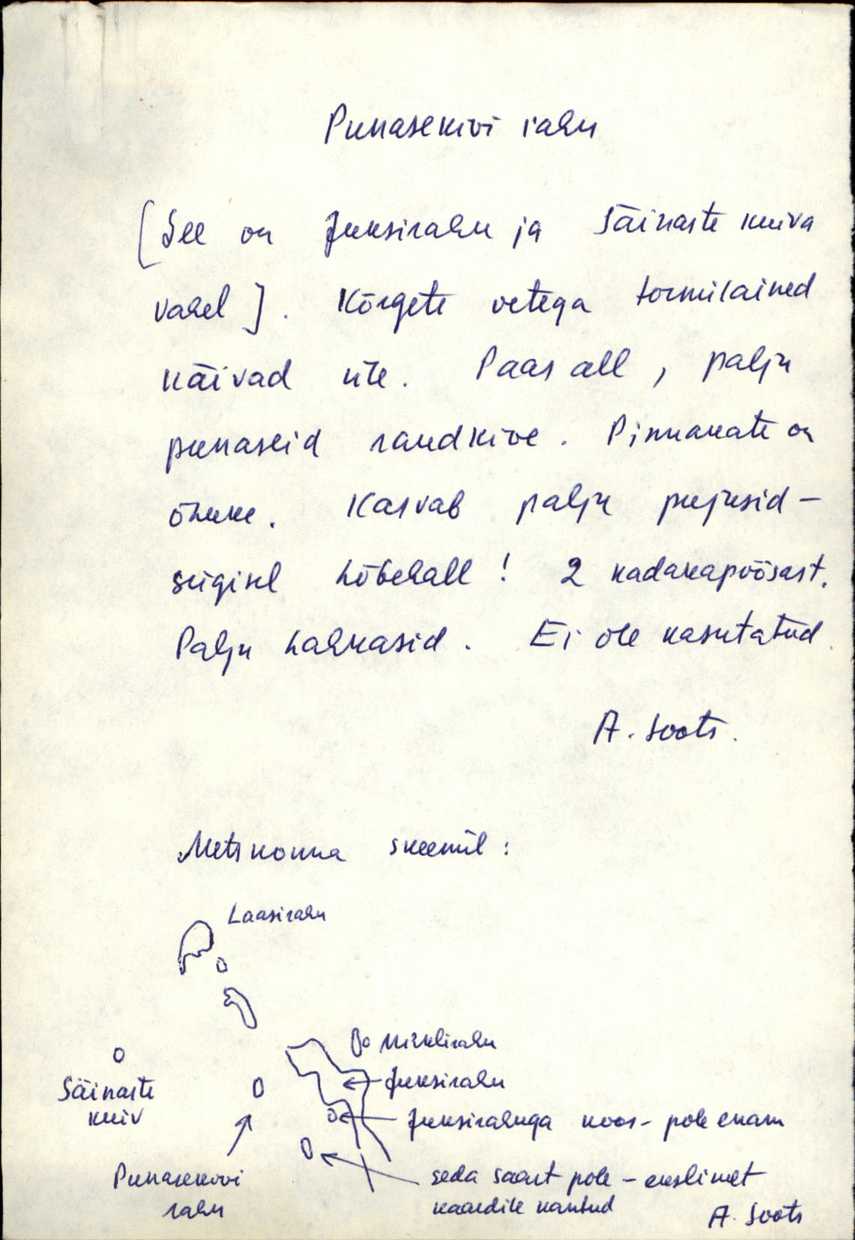 Punasekivi rahu
[See on Juksirahu ja Säinaste kuiva
vahel]. Kõrgete vetega tormilained
käivad üle. Paas all, palju
punaseid raudkive. Pinnakate on
õhuke. Kasvab palju pujusid -
sügisel hõbehall! 2 kadakapõõsast.
Palju hahkasid. Ei ole kasutatud.
A. Soots.
Metskonna skeemil:
Laasirahu
Mihklirahu
Säinaste
kuiv
Juksirahu
Juksirahuga koos - pole enam
Punasekivi
rahu
seda saart pole - ekslikult
kaardile kantud
A. Soots